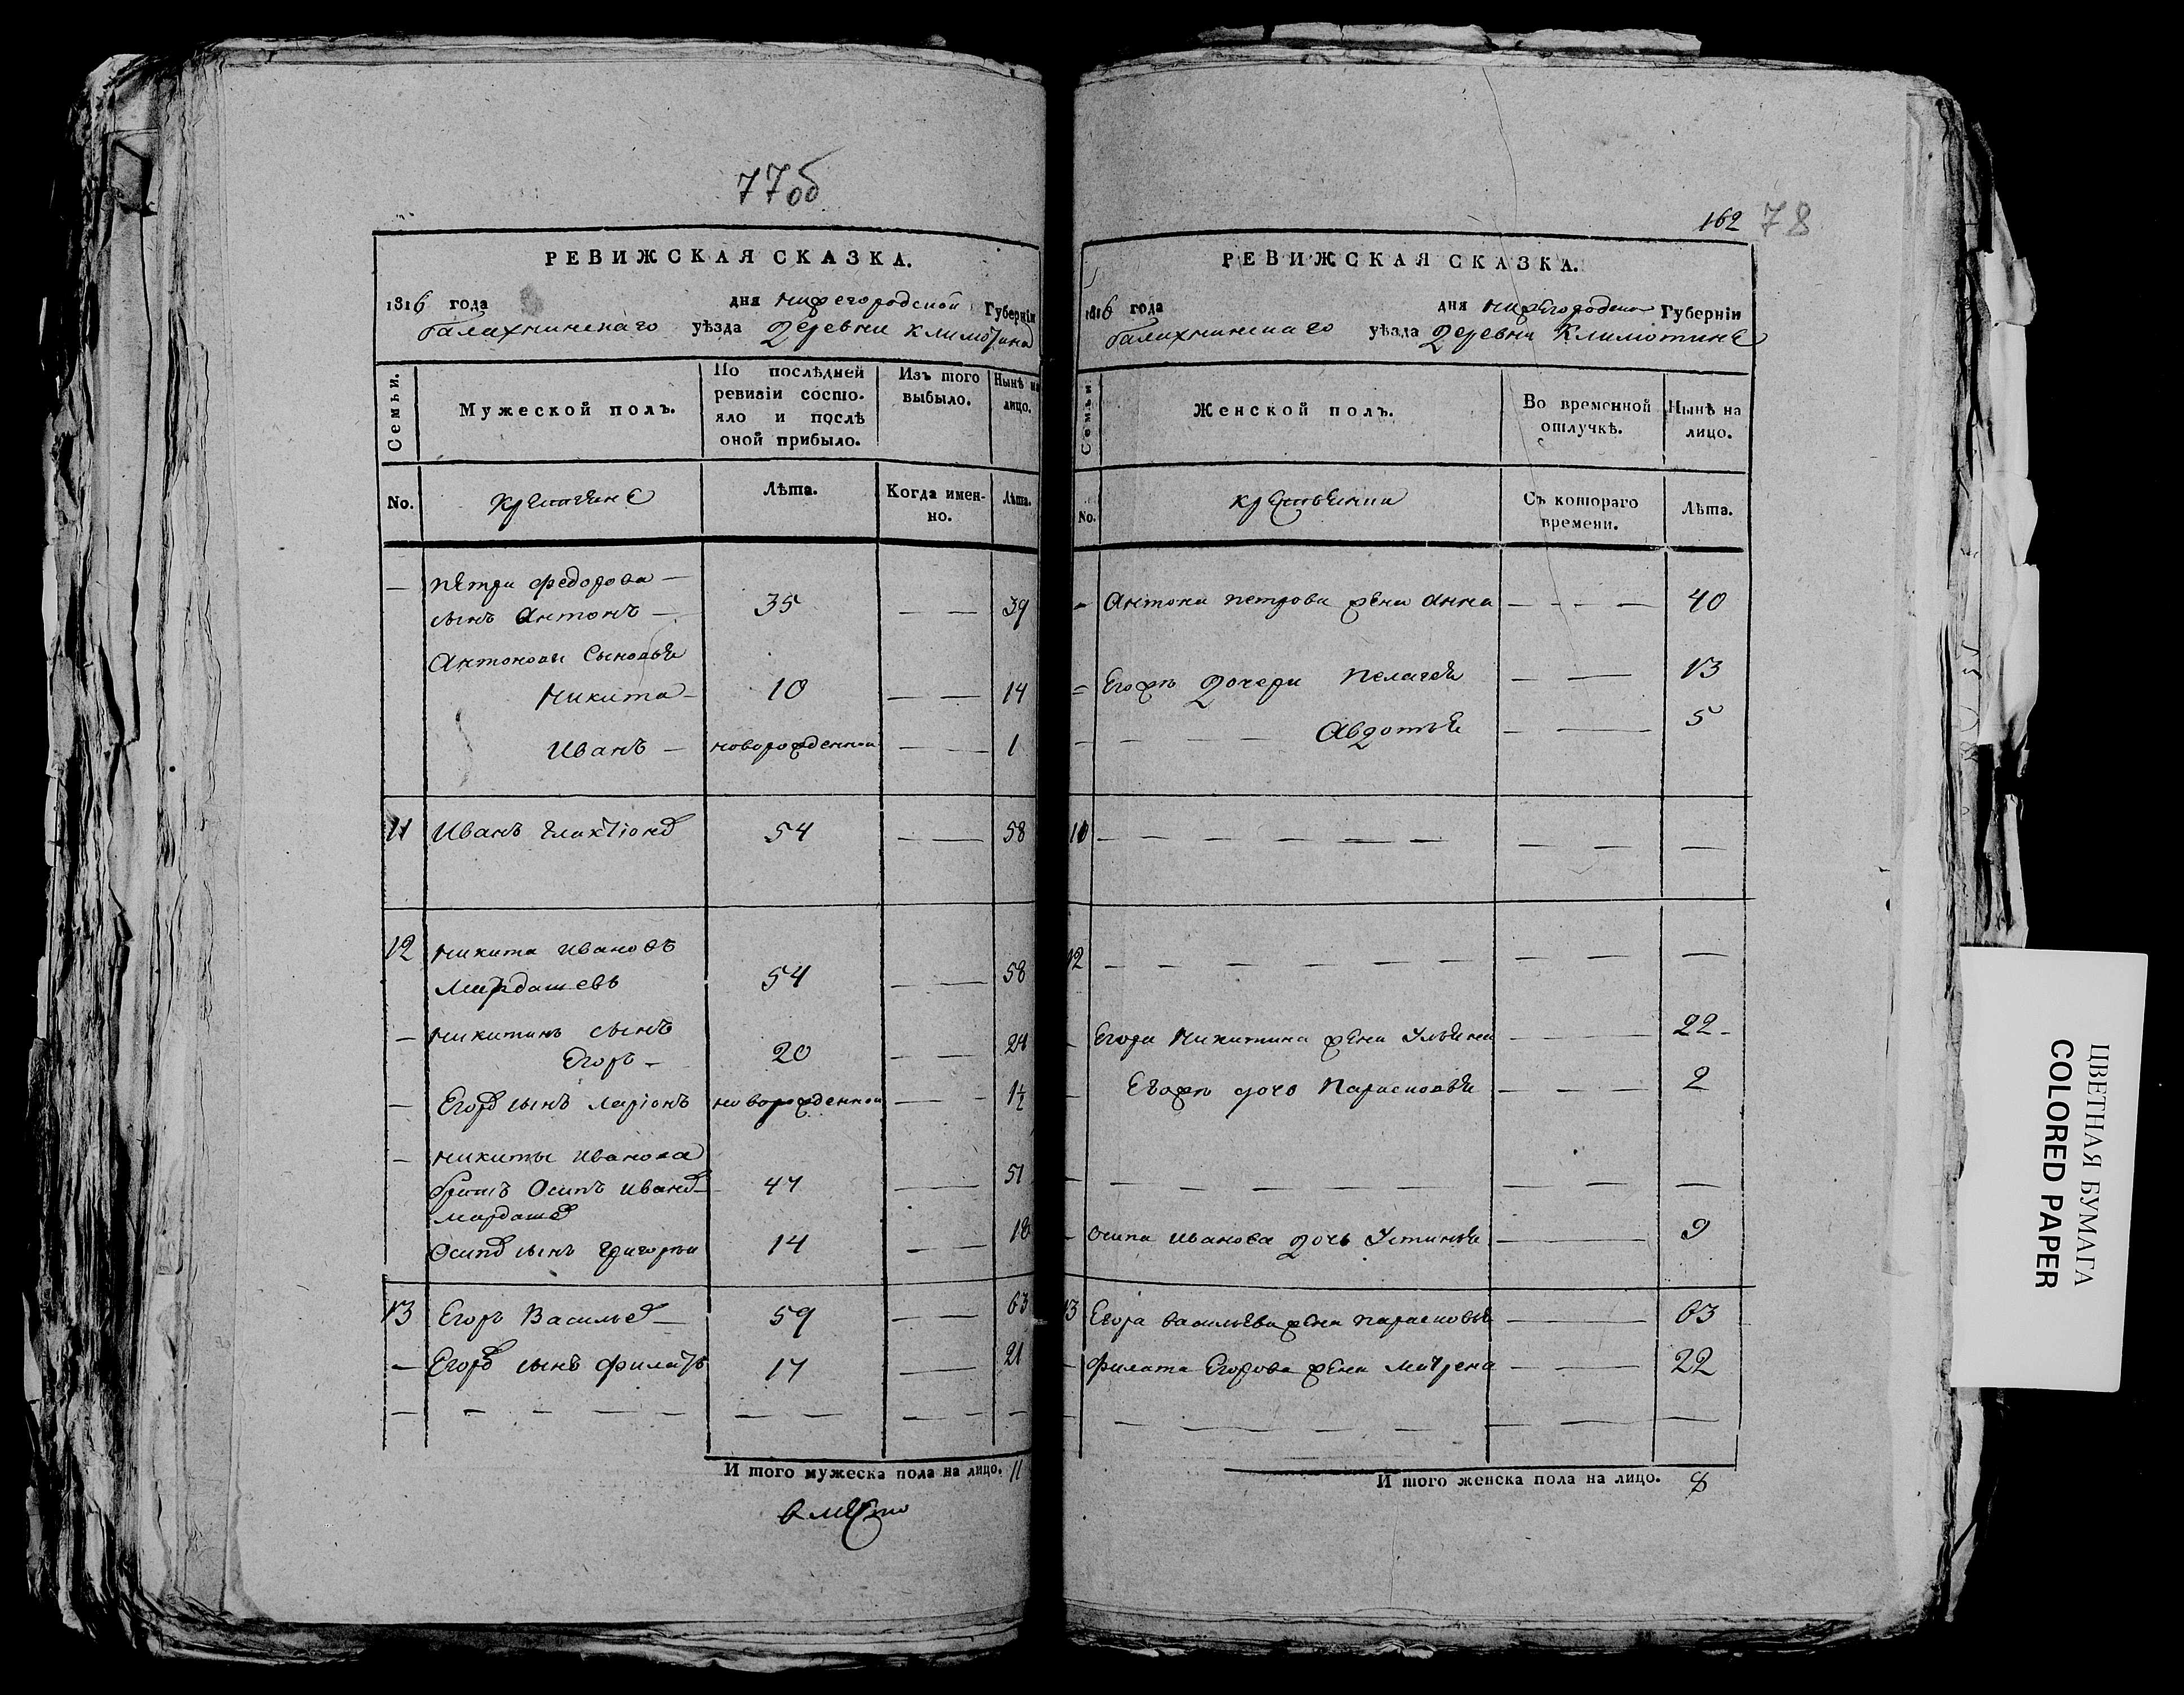 77об
РЕВИЖСКАЯ СКАЗКА.
1816 года дня нижегородской Губерніи
балахнинскаго уѣзда деревни климотина
Семьи.
Мужеской полъ.
По послѣдней
ревизіи состо-
яло и послѣ
оной прибыло.
Изъ того
выбыло.
Нынѣ на
лицо.
No.
Крестьяне
Лѣта.
Когда имен-
но.
Лѣта.
— петра федорова —
сынъ Антонъ — 35 — — 39
Антоновы Сыновья
Никита — 10 — — 14
Иванъ — новорожденной — — 1
11 Иванъ 54 — — 58
12 никита ивановъ
Мардашевъ 54 — — 58
— никитинъ сынъ
Егоръ — 20 — — 24
— Егоровъ сынъ ларіонъ новорожденной — — 1½
— никиты иванова
братъ Осипъ ивановъ 47 — 51
мардашевъ
Осиповъ сынъ григорьи 14 — — 18
13 Егоръ Васильевъ — 59 — — 63
— Егоровъ сынъ филатъ 17 — 21
И того мужеска пола на лицо. 11
вместо
162 78
РЕВИЖСКАЯ СКАЗКА.
1816 года дня нижегородской Губерніи
балахнинскаго уѣзда деревни Климотина
Семьи.
Женской полъ.
Во временной
отлучкѣ.
Нынѣ на
лицо.
No.
крестьянки
Съ котораго
времени.
Лѣта.
— Антона петрова жена анна — — — 40
= Егожъ дочери пелагея — — 13
— — — — Авдотья — — 5
11 — — — — — — —
12 — — — — — — —
— Егора Никитина жена Ульяна — — 22 -
— Егожъ дочь Парасковья — — — 2
— — — — — — —
— осипа иванова дочь Устинья — — 9
13 Егора васильева жена парасковья — — 63
— филата Егорова жена матрена — — 22
И того женска пола на лицо. 8
ЦВЕТНАЯ БУМАГА
COLORED PAPER